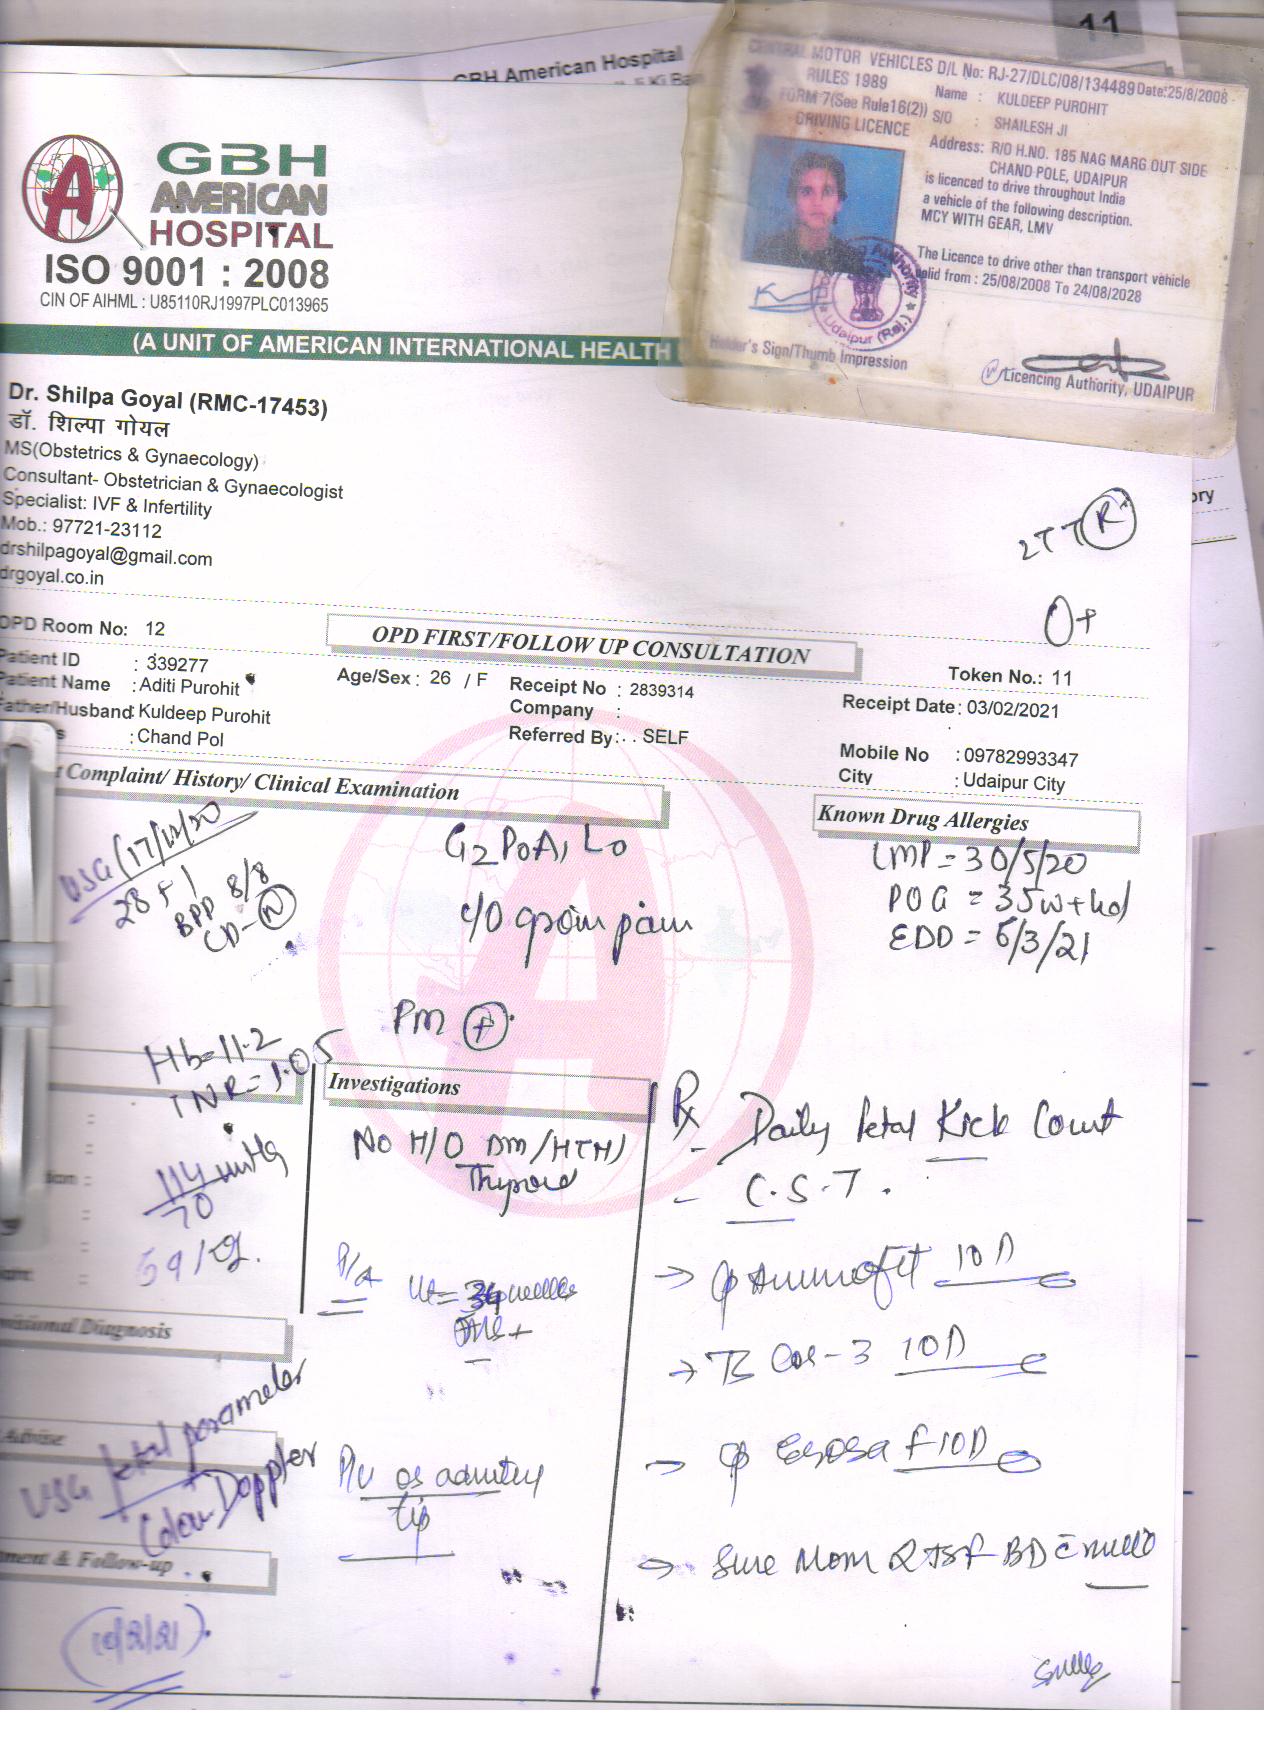 11
GBH American Hospital
CENTRAL MOTOR VEHICLES D/L No: RJ-27/DLC/08/134489 Date:25/8/2008
RULES 1989
Name : KULDEEP PUROHIT
FORM 7(See Rule16(2))
S/O : SHAILESH JI
DRIVING LICENCE
Address: R/O H.NO. 185 NAG MARG OUT SIDE
CHAND POLE, UDAIPUR
is licenced to drive throughout India
a vehicle of the following description.
MCY WITH GEAR, LMV
The Licence to drive other than transport vehicle
valid from : 25/08/2008 To 24/08/2028
Udaipur (Raj.)
Holder's Sign/Thumb Impression
Licencing Authority, UDAIPUR
GBH
AMERICAN
HOSPITAL
ISO 9001 : 2008
CIN OF AIHML : U85110RJ1997PLC013965
(A UNIT OF AMERICAN INTERNATIONAL HEALTH
Dr. Shilpa Goyal (RMC-17453)
डॉ. शिल्पा गोयल
MS(Obstetrics & Gynaecology)
Consultant- Obstetrician & Gynaecologist
Specialist: IVF & Infertility
Mob.: 97721-23112
drshilpagoyal@gmail.com
drgoyal.co.in
ory
2TT R
O+
OPD Room No: 12
OPD FIRST/FOLLOW UP CONSULTATION
Token No.: 11
Patient ID : 339277
Patient Name : Aditi Purohit
Age/Sex : 26 / F
Receipt No : 2839314
Receipt Date : 03/02/2021
Father/Husband : Kuldeep Purohit
Company :
s : Chand Pol
Referred By : . . SELF
Mobile No : 09782993347
City : Udaipur City
t Complaint/ History/ Clinical Examination
Known Drug Allergies
USG (17/12/20
28
BPP 8/8
CD- N
G2P0A1L0
c/o groin pain
PM +
LMP = 30/5/20
POG = 35w+4d
EDD = 6/3/21
Hb=11.2
INR=1.05
114/70 mmHg
59 kg.
Investigations
No H/O DM/HTN/
Thyroid
P/A Ut = 34 weeks
FHS+
P/V os admitting
tip
Rx
- Daily fetal Kick Count
- C.S.T.
10D
10D
10D
BD
Provisional Diagnosis
Advise
USG fetal parameter
+
Colour Doppler
ment & Follow-up
(10/2/21)